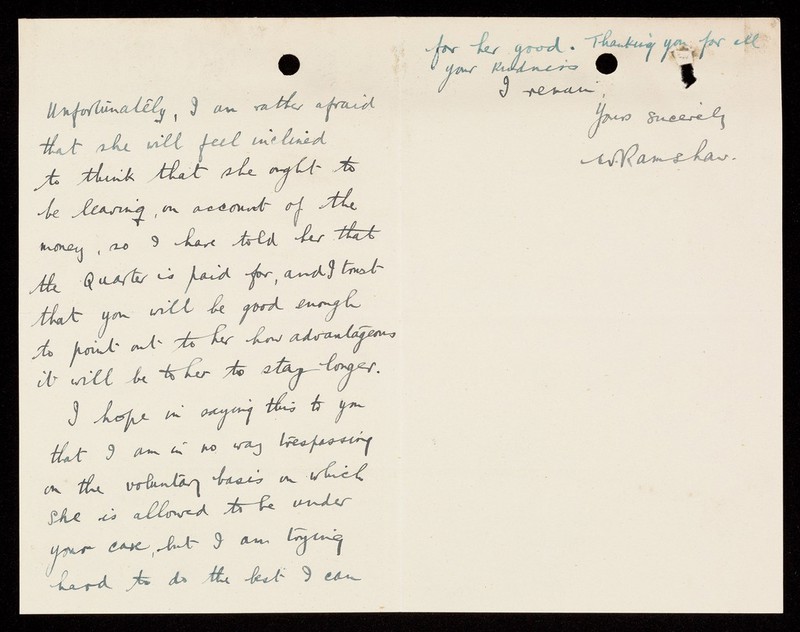 Unfortunately, I am rather afraid
that she will feel inclined
to think that she ought to
be leaving, on account of the
money, so I have told her that
the Quarter is paid for, and I trust
that you will be good enough
to point out to her how advantageous
it will be to her to stay longer.
I hope in saying this to you
that I am in no way trespassing
on the voluntary basis on which
she is allowed to be under
your care, but I am trying
hard to do the best I can
for her good. Thanking you for all
your kindness
I remain,
Yours sincerely
Ramshaw.